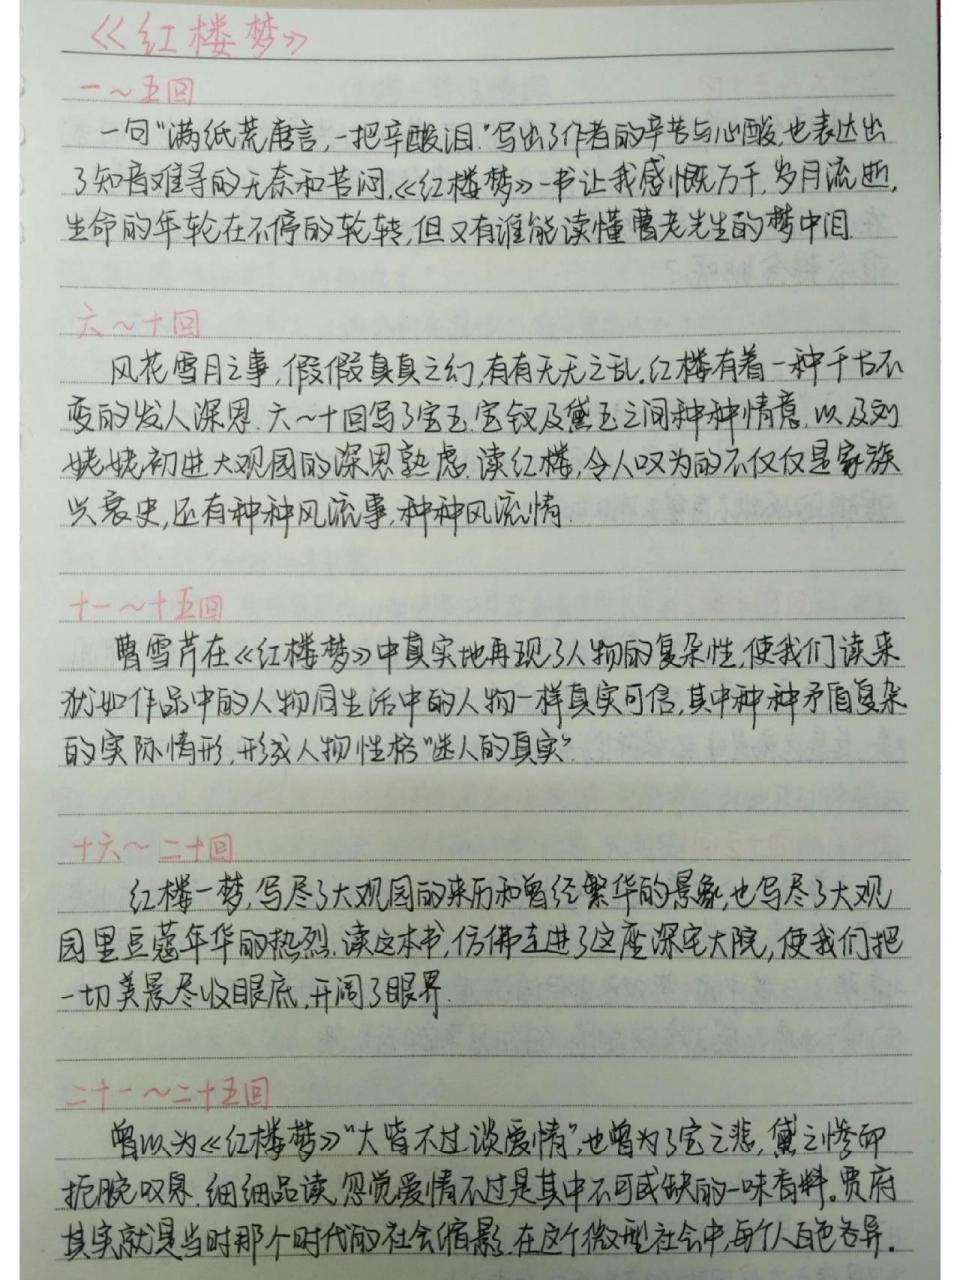 《红楼梦》
一～五回
一句“满纸荒唐言，一把辛酸泪。”写出了作者的辛苦与心酸，也表达出
了知音难寻的无奈和苦闷。《红楼梦》一书让我感慨万千，岁月流逝，
生命的年轮在不停的轮转，但又有谁能读懂曹老先生的梦中泪.
六～十回
风花雪月之事，假假真真之幻，有有无无之乱。红楼有着一种千古不
变的发人深思.六～十回写了宝玉.宝钗及黛玉之间种种情意，以及刘
姥姥初进大观园的深思熟虑.读红楼，令人叹为的不仅仅是家族
兴衰史，还有种种风流事，种种风流情.
十一～十五回
曹雪芹在《红楼梦》中真实地再现了人物的复杂性，使我们读来
犹如作品中的人物同生活中的人物一样真实可信，其中种种矛盾复杂
的实际情形，形成人物性格“迷人的真实”.
十六～二十回
红楼一梦，写尽了大观园的来历和曾经繁华的景象，也写尽了大观
园里豆蔻年华的热烈.读这本书，仿佛走进了这座深宅大院，使我们把
一切美景尽收眼底，开阔了眼界.
二十一～二十五回
曾以为《红楼梦》“大皆不过谈爱情”，也曾为了宝之悲，黛之惨而
扼腕叹息.细细品读，忽觉爱情不过是其中不可或缺的一味香料。贾府
其实就是当时那个时代的社会缩影.在这个微型社会中，每个人百色各异.